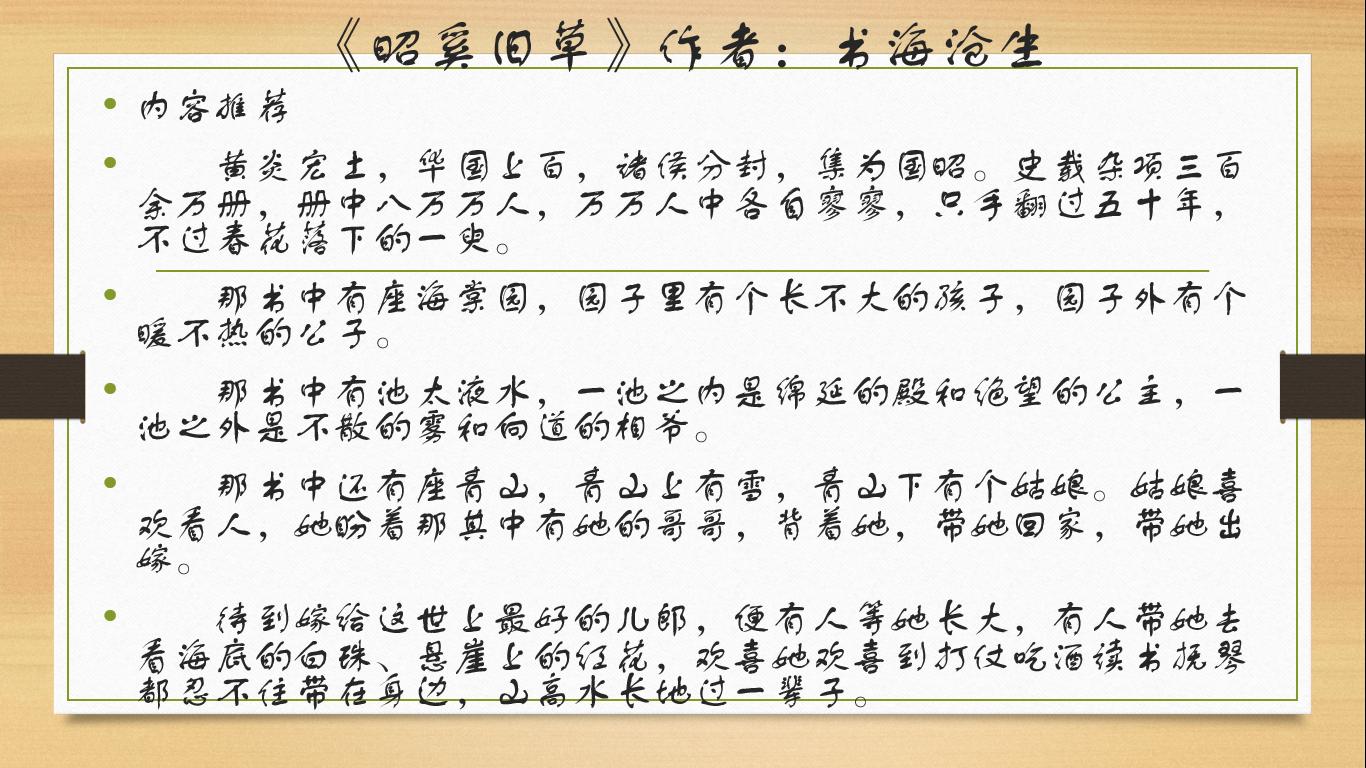 《昭奚旧草》作者：书海沧生
内容推荐
黄炎宏土，华国上百，诸侯分封，集为国昭。史载杂项三百
余万册，册中八万万人，万万人中各自寥寥，只手翻过五十年，
不过春花落下的一臾。
那书中有座海棠园，园子里有个长不大的孩子，园子外有个
暖不热的公子。
那书中有池太液水，一池之内是绵延的殿和绝望的公主，一
池之外是不散的雾和向道的相爷。
那书中还有座青山，青山上有雪，青山下有个姑娘。姑娘喜
欢看人，她盼着那其中有她的哥哥，背着她，带她回家，带她出
嫁。
待到嫁给这世上最好的儿郎，便有人等她长大，有人带她去
看海底的白珠、悬崖上的红花，欢喜她欢喜到打仗吃酒读书抚琴
都忍不住带在身边，山高水长地过一辈子。